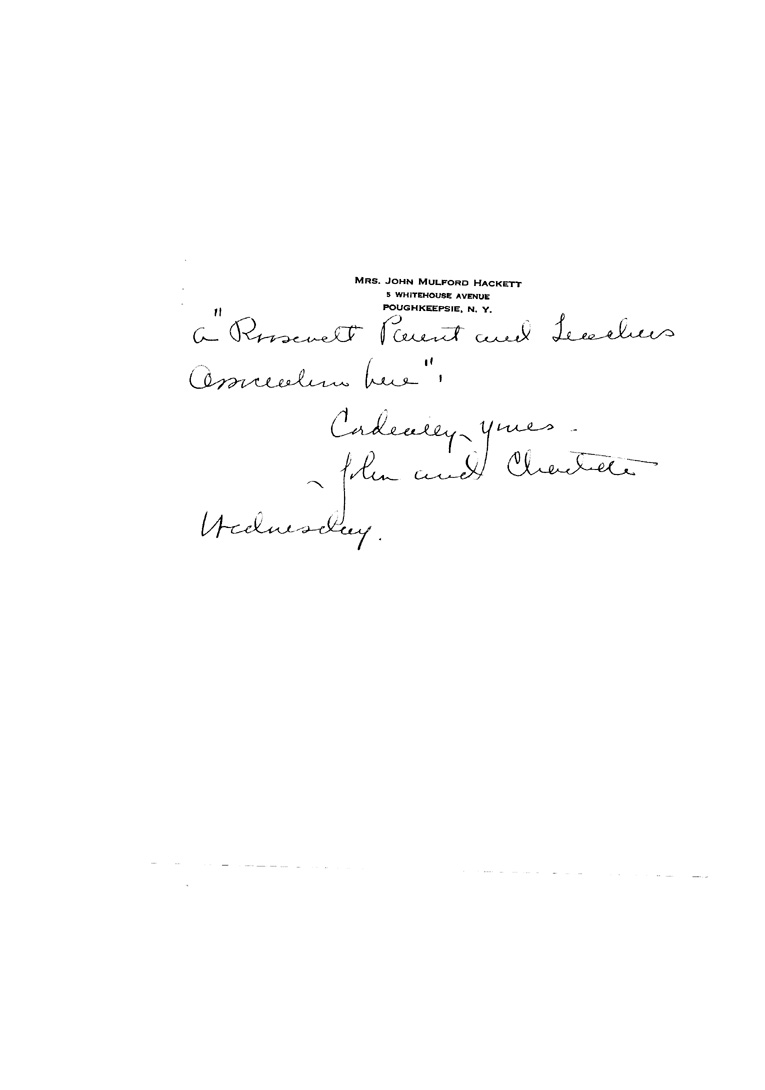 MRS. JOHN MULFORD HACKETT
5 WHITEHOUSE AVENUE
POUGHKEEPSIE, N. Y.
a "Roosevelt Parent and Teachers
Association here".
Cordially yours -
John and Charlotte
Wednesday.